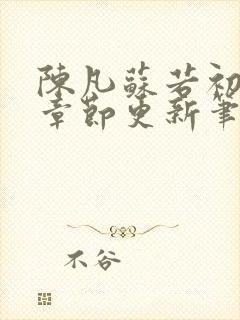 陳凡蘇若初
章節更新筆
不谷